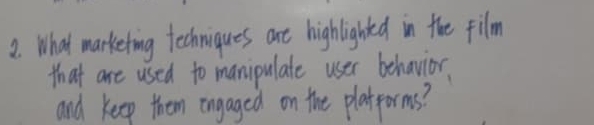 2. What marketing techniques are highlighted in the film
that are used to manipulate user behavior,
and keep them engaged on the platforms?